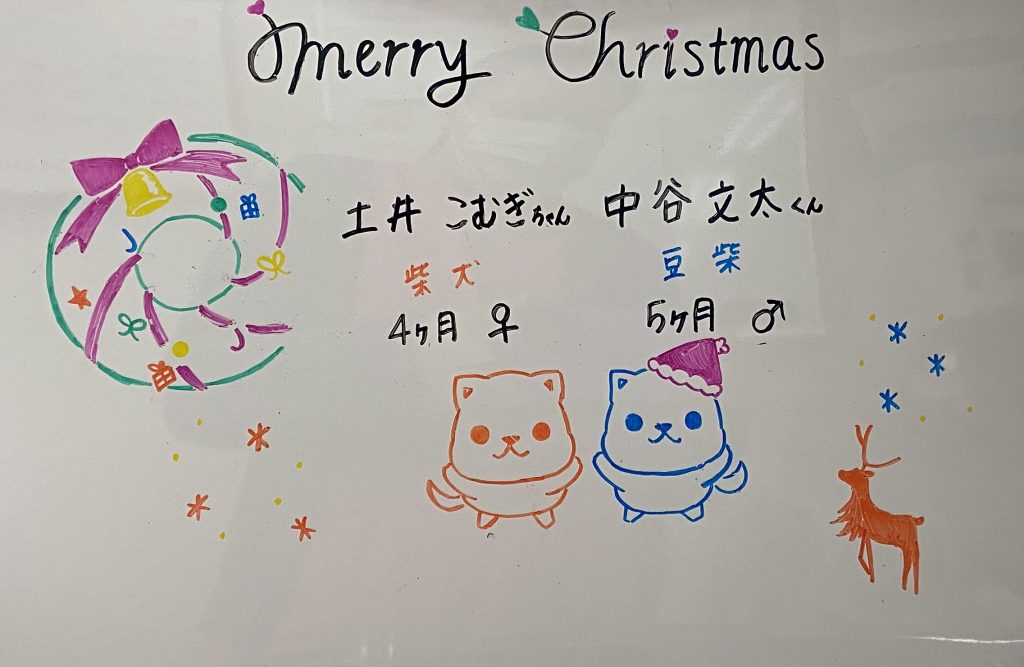 Merry Christmas
土井 こむぎちゃん 中谷 文太くん
柴犬 豆柴
4ヶ月 ♀ 5ヶ月 ♂